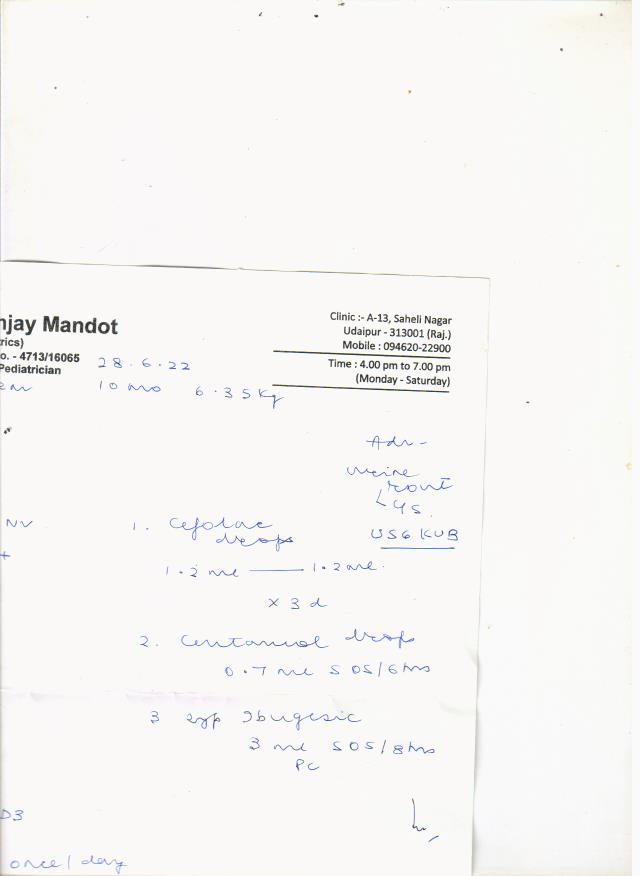 njay Mandot
rics)
o. - 4713/16065
Pediatrician
Clinic :- A-13, Saheli Nagar
Udaipur - 313001 (Raj.)
Mobile : 094620-22900
Time : 4.00 pm to 7.00 pm
(Monday - Saturday)
28.6.22
10 mo 6.35 kg
Adv -
urine
rout
USG KUB
NV
+
1. Cefolac
drops
1.2 ml — 1.2 ml.
x 3 d
2. drops
0.7 ml SOS/6hrs
3 syp Ibugesic
3 ml SOS/8hrs
PC
D3
once/day